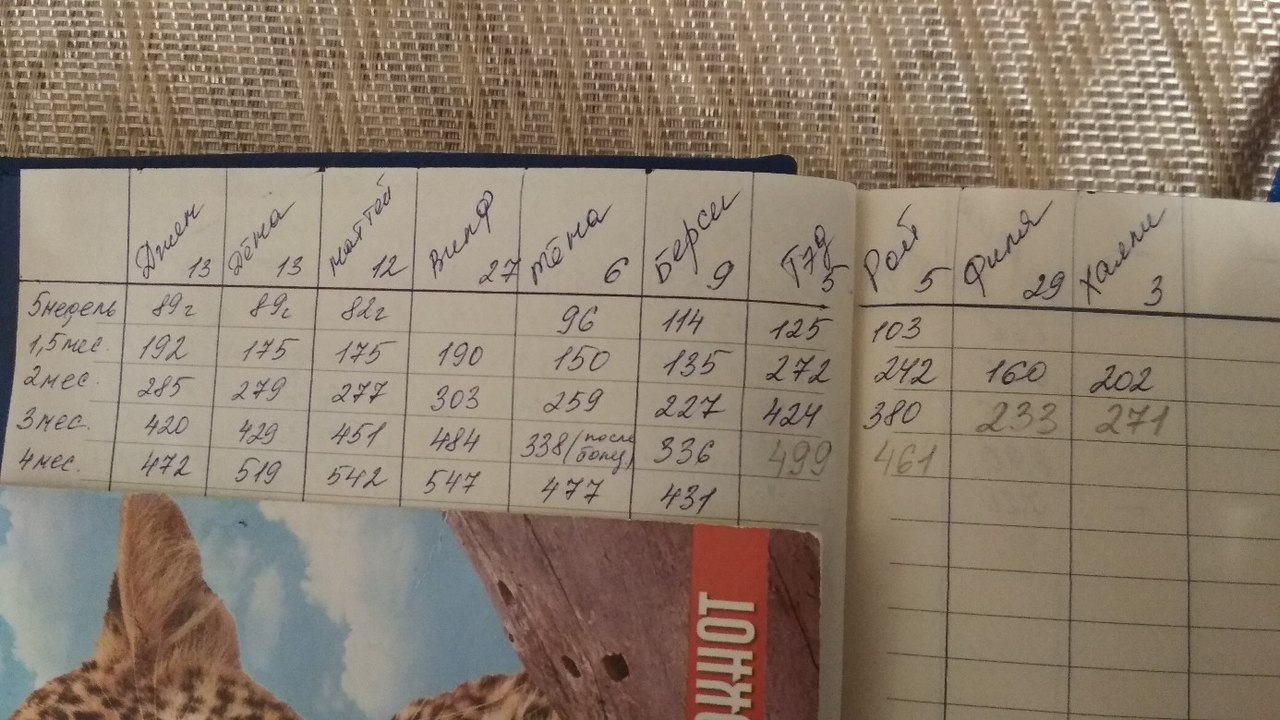 Джен Дёна Маттей Вилф Тёна Берси Тэд Рой Филя Халли
13 13 12 27 6 9 5 5 29 3
5недель 89г 89г 82г 96 114 125 103
1,5мес. 192 175 175 190 150 135 272 242 160 202
2мес. 285 279 277 303 259 227 424 380 233 271
3мес. 420 429 451 484 338(после 336 499 461
4мес. 472 519 542 547 477 431